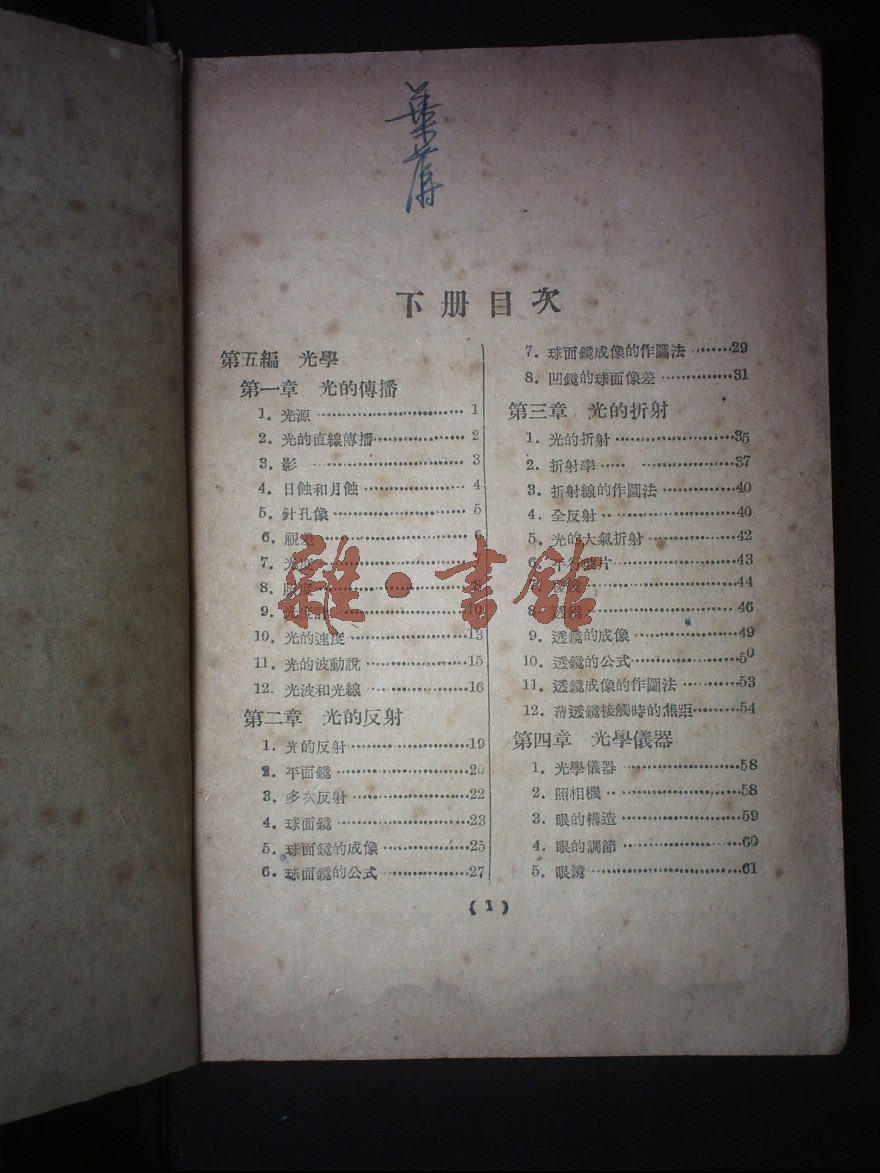 葉
下册目次
第五編 光學
第一章 光的傳播
1. 光源 1
2. 光的直線傳播 2
3. 影 3
4. 日蝕和月蝕 4
5. 針孔像 5
6. 視差 6
7. 光度
8. 照度 8
9. 光度計 10
10. 光的速度 13
11. 光的波動說 15
12. 光波和光線 16
第二章 光的反射
1. 光的反射 19
2. 平面鏡 20
3. 多次反射 22
4. 球面鏡 23
5. 球面鏡的成像 25
6. 球面鏡的公式 27
7. 球面鏡成像的作圖法 29
8. 凹鏡的球面像差 31
第三章 光的折射
1. 光的折射 35
2. 折射率 37
3. 折射線的作圖法 40
4. 全反射 40
5. 光的大氣折射 42
6. 平行玻片 43
7. 稜鏡 44
8. 透鏡 46
9. 透鏡的成像 49
10. 透鏡的公式 50
11. 透鏡成像的作圖法 53
12. 薄透鏡接觸時的焦距 54
第四章 光學儀器
1. 光學儀器 58
2. 照相機 58
3. 眼的構造 59
4. 眼的調節 60
5. 眼鏡 61
(1)
雜·書館